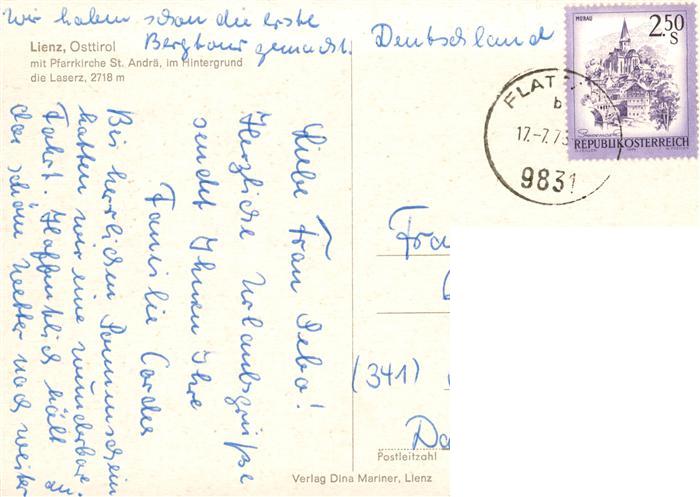 Wir haben schon die erste
Bergtour gemacht.
Lienz, Osttirol
mit Pfarrkirche St. Andrä, im Hintergrund
die Laserz, 2718 m
Liebe Frau
Herzliche Urlaubsgrüße
sendet Ihnen Ihre
Familie Cordes
Bei herrlichem Sonnenschein
hatten wir eine wunderbare
Fahrt. Hoffentlich hält
das schöne Wetter noch weiter
an.
Deutschland
MURAU
2.50
S
REPUBLIK ÖSTERREICH
FLAT
b
17.-7.75
9831
Fra
(341)
Da
Postleitzahl
Verlag Dina Mariner, Lienz